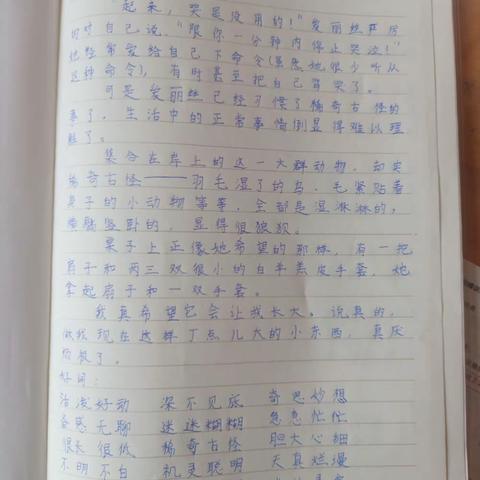 "起来，哭是没用的！"爱丽丝严厉
对自己说，"限你一分钟内停止哭泣！"
她经常爱给自己下命令(虽然她很少听从
这种命令)，有时甚至把自己骂哭了。
可是爱丽丝已经习惯了稀奇古怪的
事了，生活中的正常事情倒显得难以理
解了。
集合在岸上的这一大群动物，却实
稀奇古怪——羽毛湿了的鸟，毛紧贴着
身子的小动物等等，全都是湿淋淋的，
横躺竖卧的，显得很狼狈。
桌子上正像她希望的那样，有一把
扇子和两三双很小的白羊羔皮手套，她
拿起扇子和一双手套。
我真希望它会让我长大。说真的，
做我现在这样丁点儿大的小东西，真厌
烦极了。
好词：
活泼好动 深不见底 奇思妙想
百感无聊 迷迷糊糊 急急忙忙
很长很低 稀奇古怪 胆大心细
不明不白 机灵聪明 天真烂漫